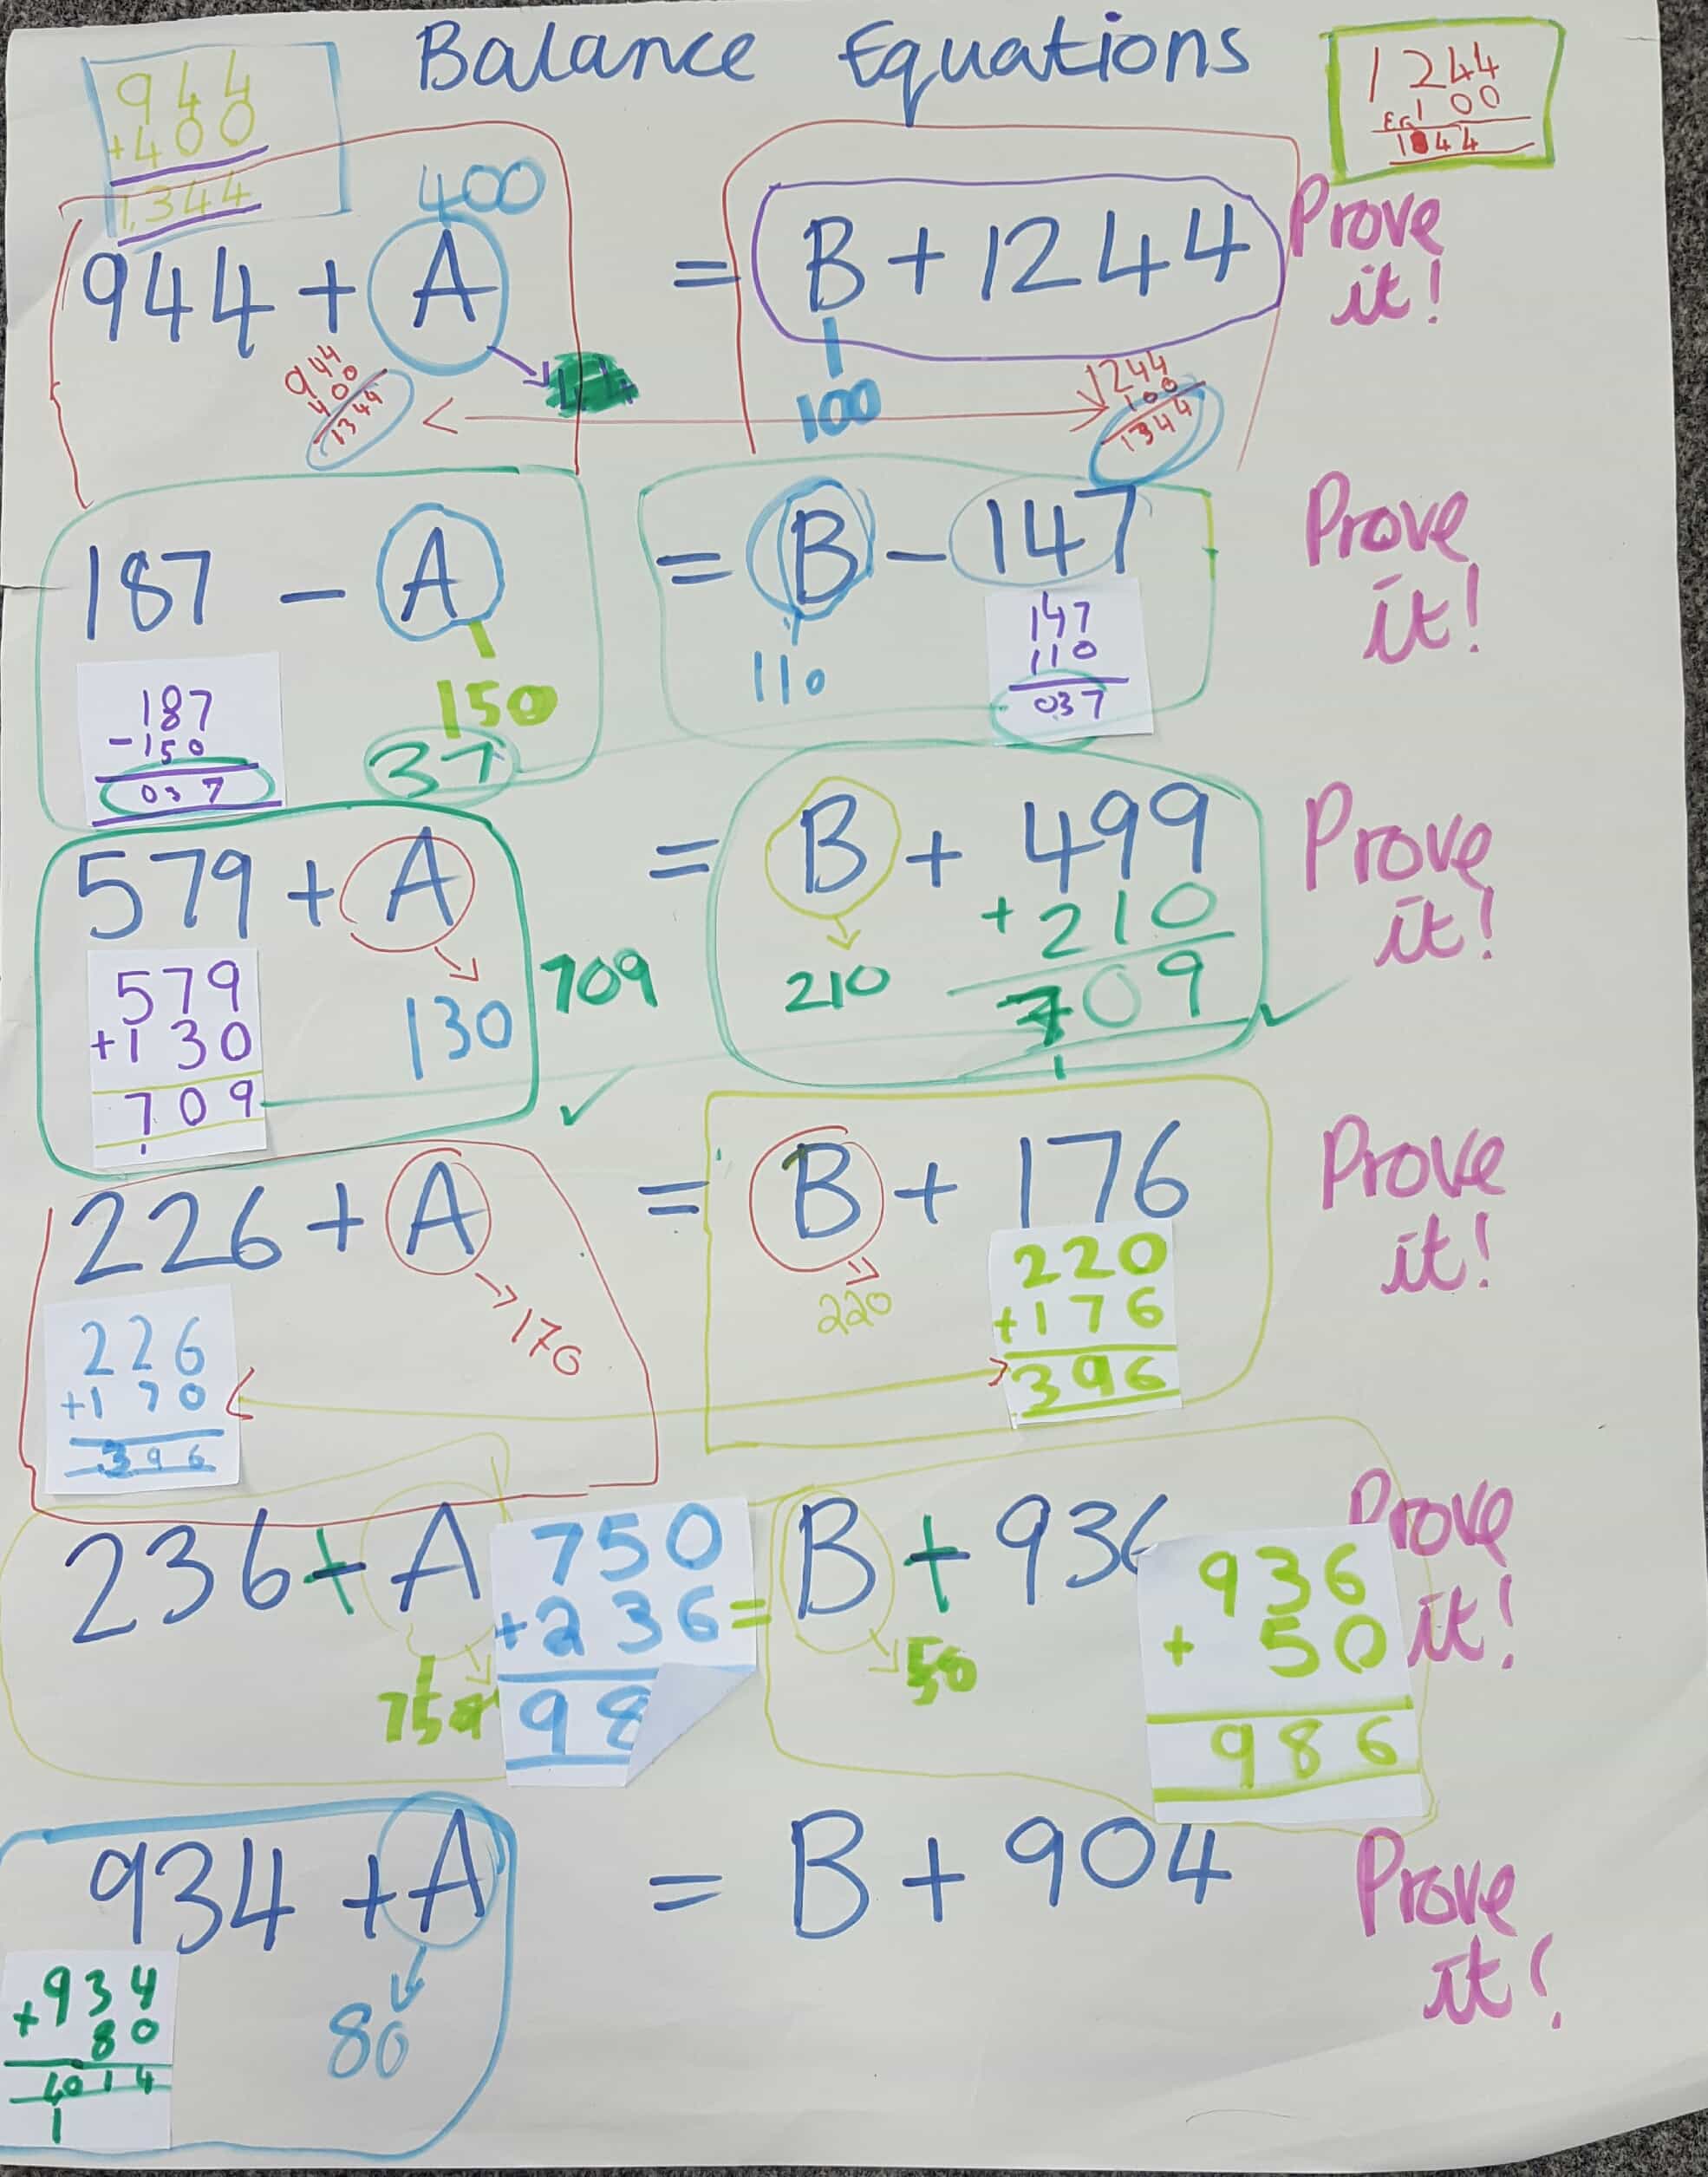 Balance Equations
944
+400
1,344
1244
Eg 100
1344
400
944 + A = B + 1244
Prove
it!
944
400
1344
100
1244
100
1344
187 - A = B - 147
Prove
it!
187
-150
037
150
37
110
147
110
037
579 + A = B + 499
Prove
it!
+ 210
709
1
579
+130
709
1
130
709
210
226 + A = B + 176
Prove
it!
226
+170
396
170
220
220
+176
396
236 + A = B + 936
Prove
it!
750
+236
98
50
936
+ 50
986
934 + A = B + 904
Prove
it!
+934
80
1014
1
80